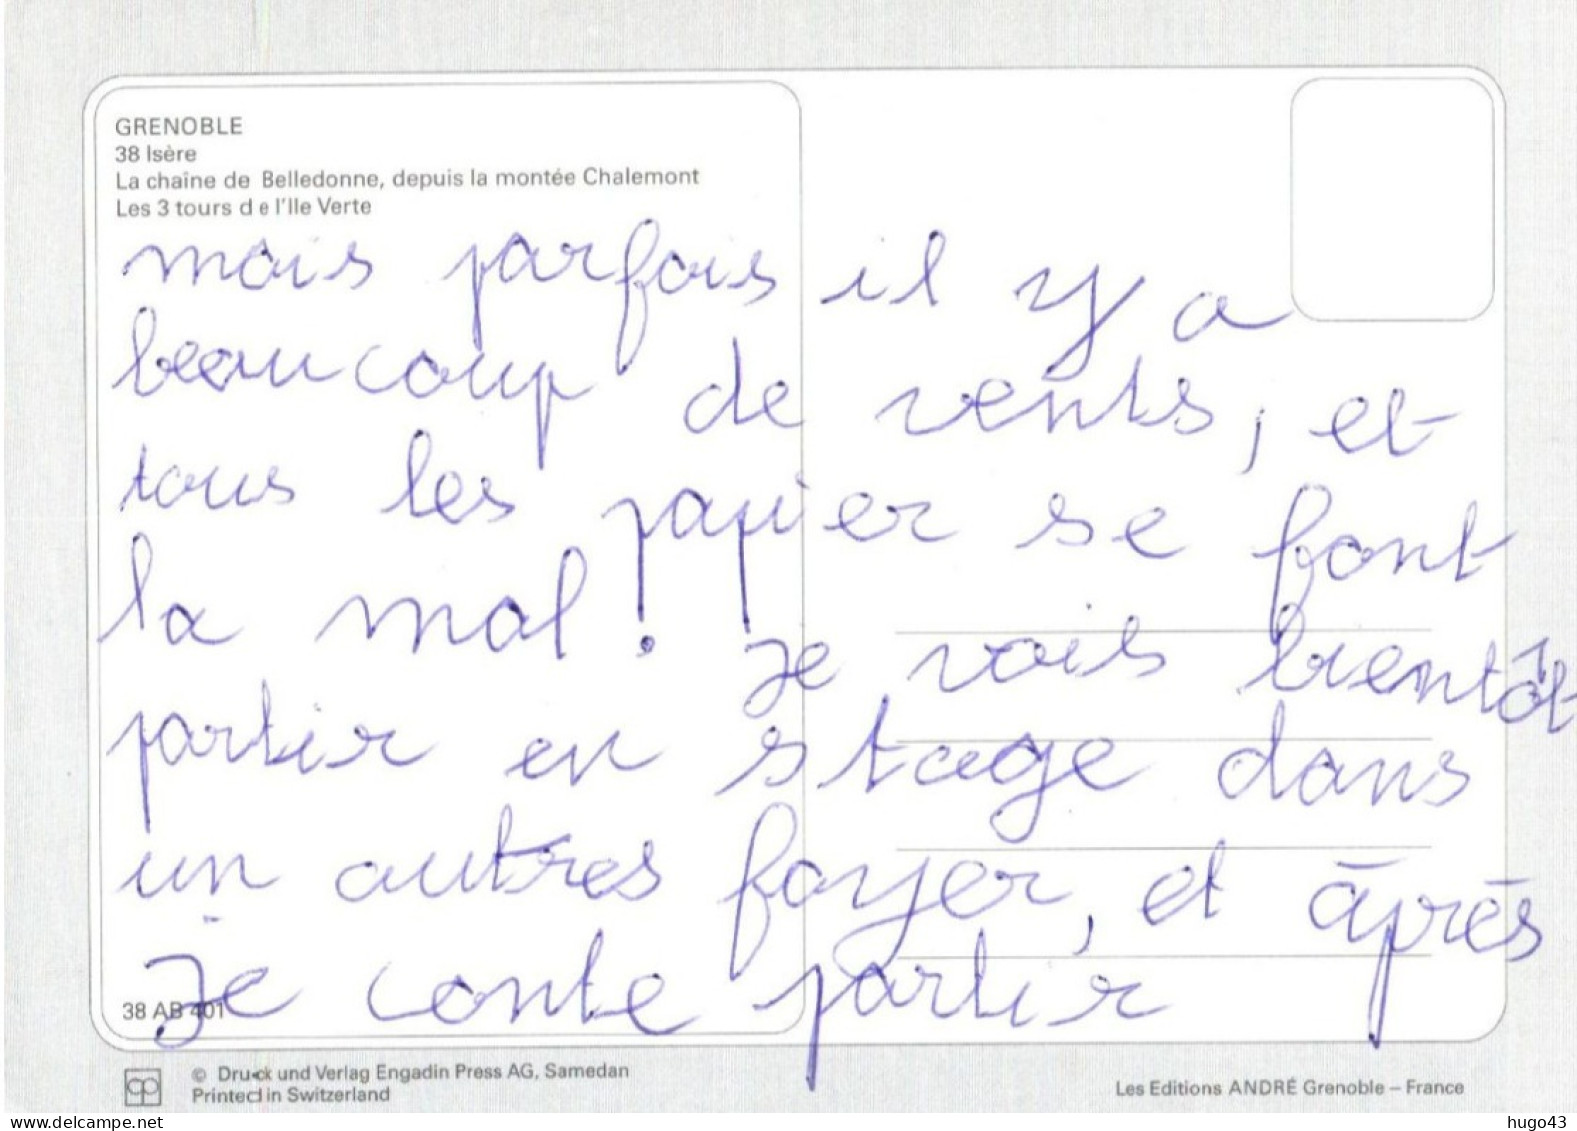 GRENOBLE
38 Isère
La chaîne de Belledonne, depuis la montée Chalemont
Les 3 tours de l'Ile Verte
mais parfois il y a
beaucoup de vents, et
tous les papier se font
la mal! Je vais bientôt
partir en stage dans
un autres foyer, et après
Je conte partir
38 AB 401
© Druck und Verlag Engadin Press AG, Samedan
Printed in Switzerland
Les Editions ANDRÉ Grenoble – France
www.delcampe.net
hugo43